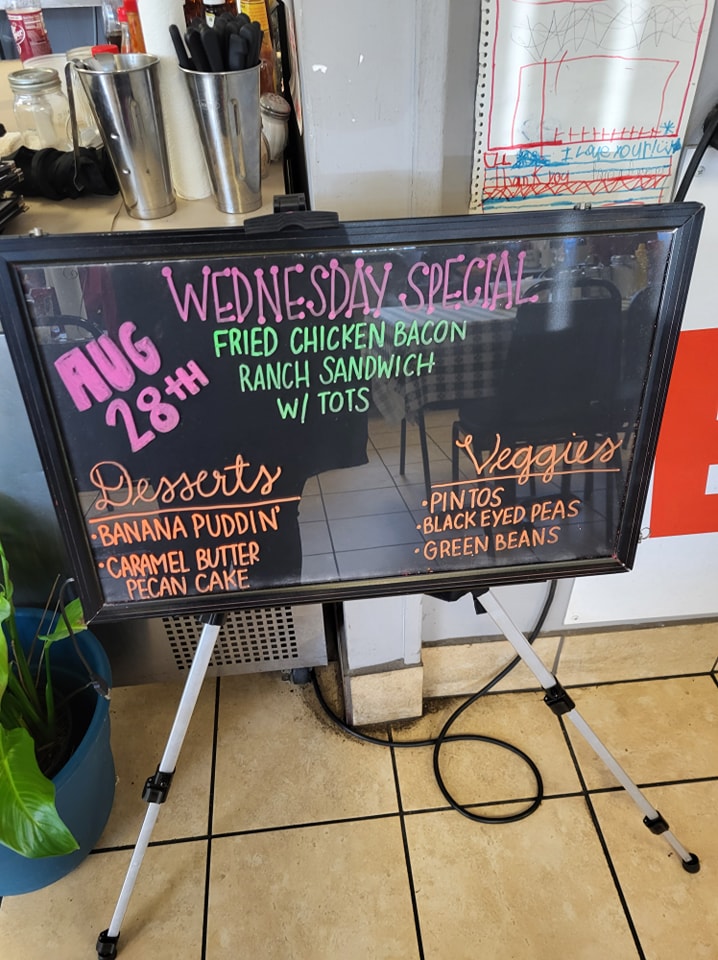 I Love your
Thank you
WEDNESDAY SPECIAL
AUG
28TH
FRIED CHICKEN BACON
RANCH SANDWICH
W/ TOTS
Desserts
•BANANA PUDDIN'
•CARAMEL BUTTER
PECAN CAKE
Veggies
•PINTOS
•BLACK EYED PEAS
•GREEN BEANS